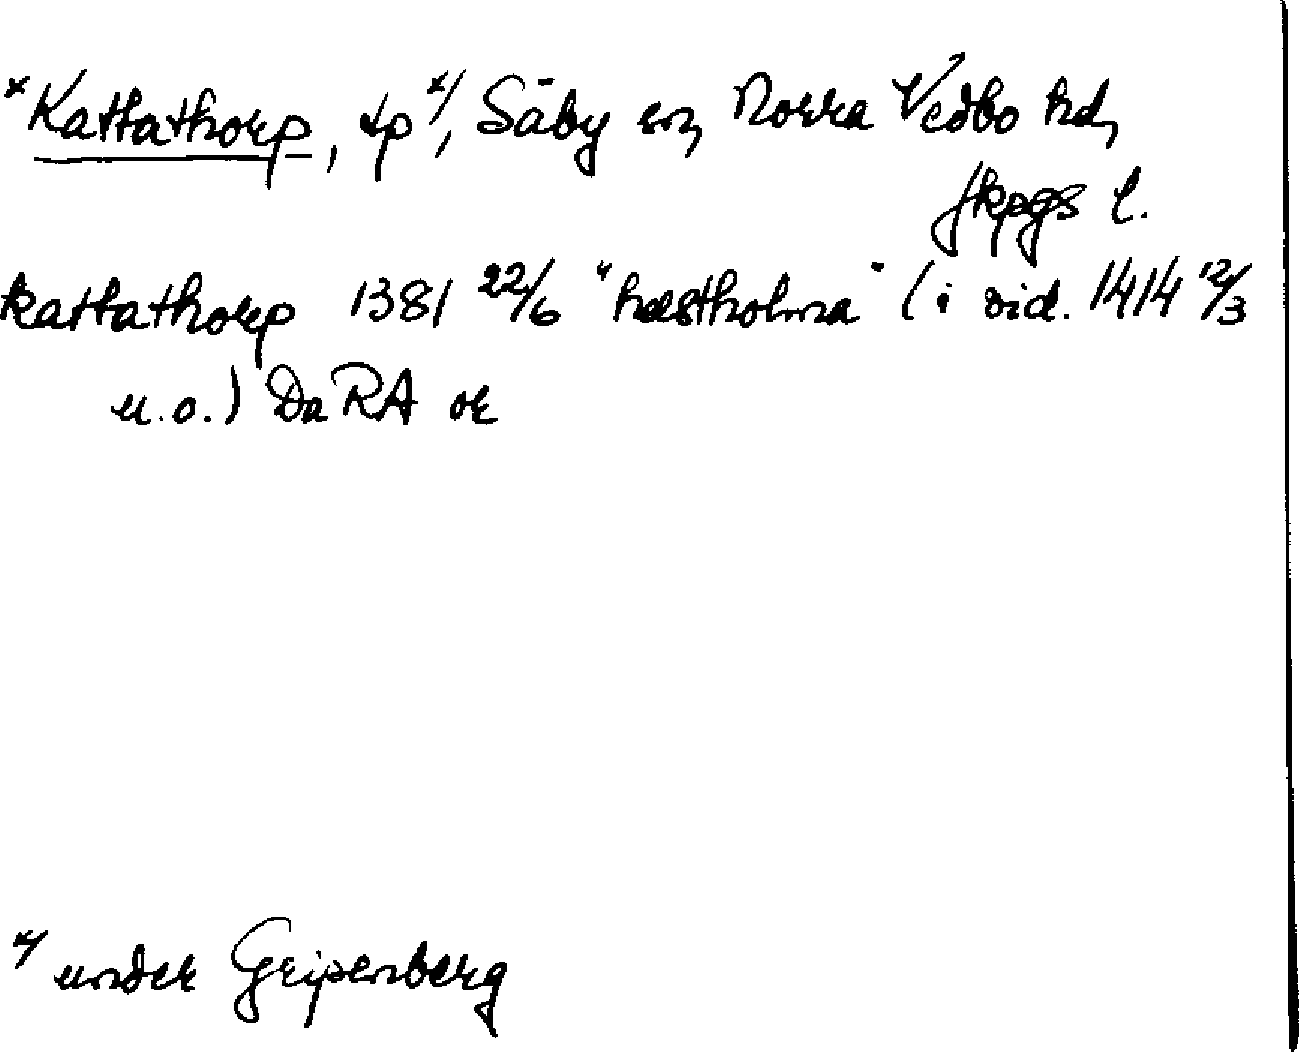 *Kattathorp, tp x/, Säby sn, Norra Vedbo hd,
Jkpgs l.
kattathorp 1381 22/6 "hæstholma" (i vid. 1414 12/3
u.o.) DaRA or
x/ under Gripenberg